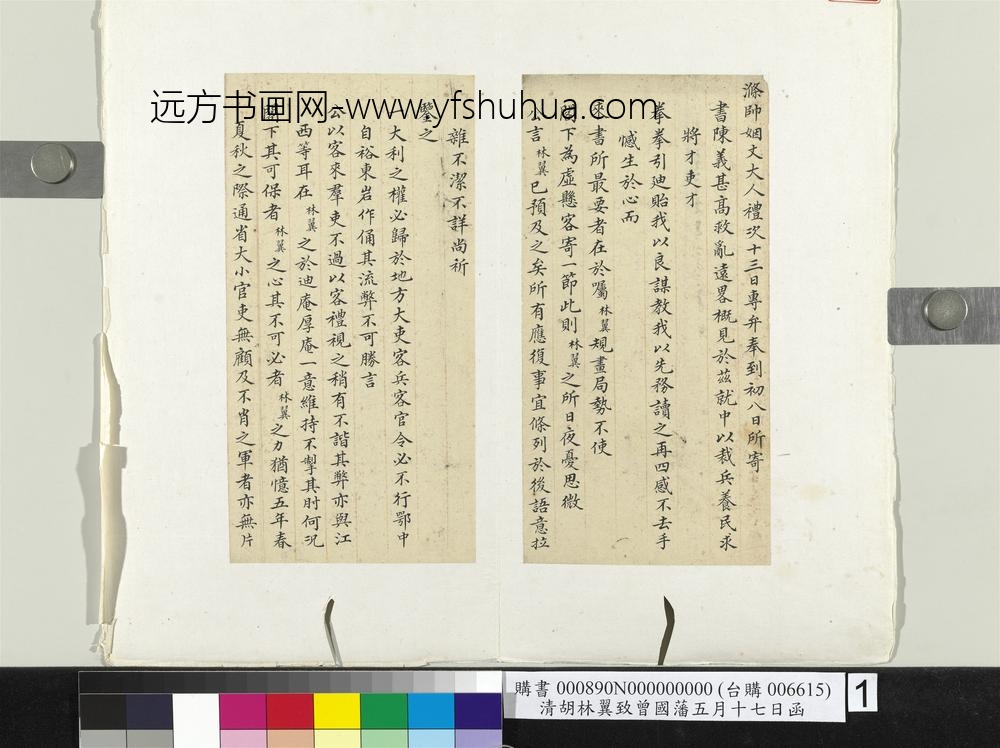 滌帥姻丈大人禮次十三日專弁奉到初八日所寄
書陳義甚高救亂遠畧概見於茲就中以裁兵養民求
將才吏才
拳拳引迪貽我以良謀教我以先務讀之再四感不去手
憾生於心而
來書所最要者在於囑林翼規畫局勢不使
閣下為虛懸客寄一節此則林翼之所日夜憂思微
小言林翼已預及之矣所有應復事宜條列於後語意拉
雜不潔不詳尚祈
鑒之
大利之權必歸於地方大吏客兵客官令必不行鄂中
自裕東岩作俑其流弊不可勝言
公以客來羣吏不過以客禮視之稍有不諧其弊亦與江
西等耳在林翼之於迪庵厚庵一意維持不掣其肘何況
閣下其可保者林翼之心其不可必者林翼之力猶憶五年春
夏秋之際通省大小官吏無顧及不肖之軍者亦無片
远方书画网-www.yfshuhua.com
購書 000890N000000000 (台購 006615)
清胡林翼致曾國藩五月十七日函
1